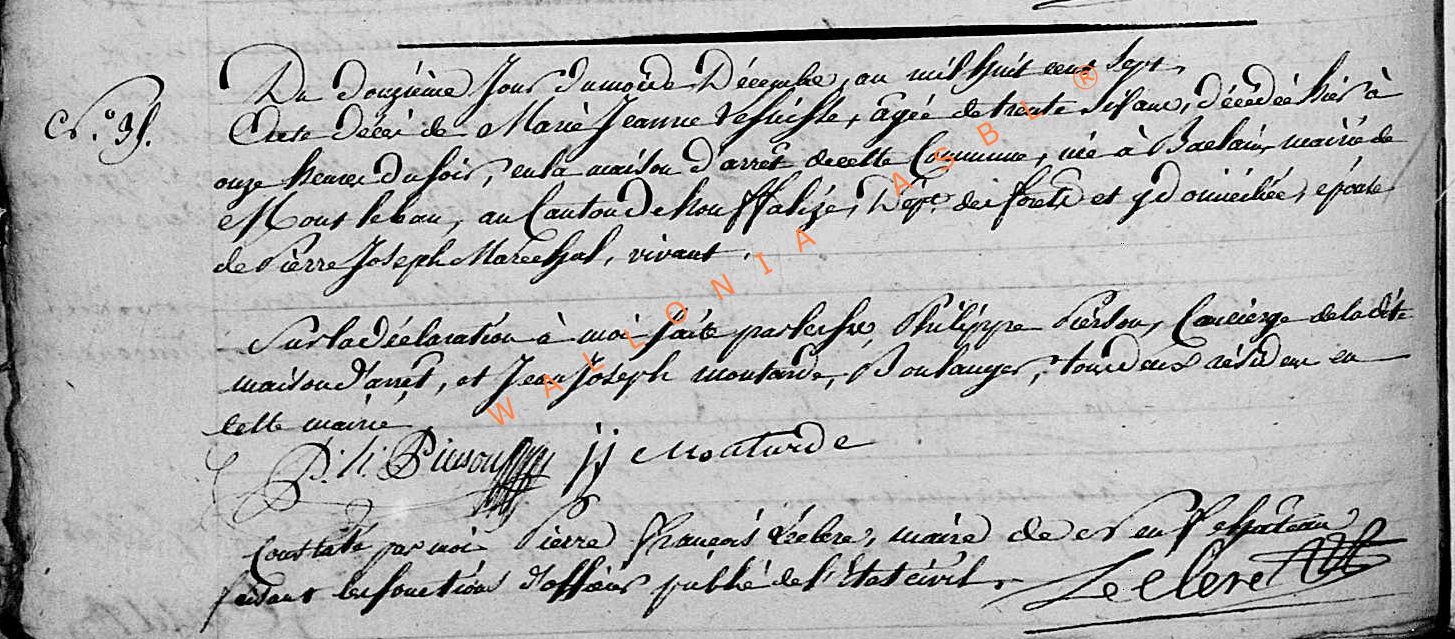 Du douzième Jour du mois de Décembre, an mil huit cent Sept,
N.°
Acte de décès de Marie Jeanne, agée de trente Six ans, décédée hier à
onze heures du soir, en la maison d'arrêt de cette Commune, née à, mairie de
Mont leban, au Canton de houffalize, Dép.t des forêts et y domiciliée, épouse
de Pierre Joseph Maréchal, vivant.
Sur la déclaration à moi faite par les Srs Philippe Pierson, Concierge de la dite
maison d'arrêt, et Jean Joseph moutarde, Boulanger, tous deux résidens en
cette mairie.
P. h. Pierson jj Mouturde
Constaté par moi Pierre françois Leclerc, maire de Neufchateau
faisant les fonctions d'officier public de l'Etat civil.
Leclerc
WALLONIA ASBL ®